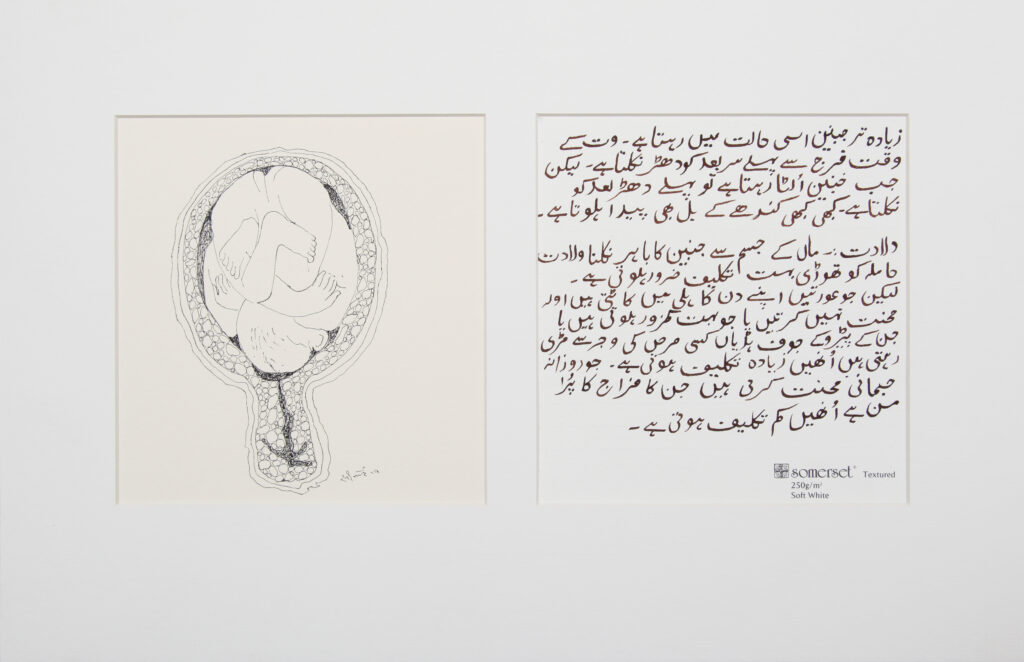 زیادہ تر جنین اسی حالت میں رہتا ہے۔ وت کے
وقت فرج سے پہلے سر بعد کو دھڑ نکلتا ہے۔ لیکن
جب جنین اُلٹا رہتا ہے تو پہلے دھڑ بعد کو
نکلتا ہے۔ کبھی کبھی کندھے کے بل بھی پیدا ہوتا ہے۔
ولادت :۔ ماں کے جسم سے جنین کا باہر نکلنا ولادت
حاملہ کو تھوڑی بہت تکلیف ضرور ہوتی ہے۔
لیکن جو عورتیں اپنے دن کاہلی میں کاٹتی ہیں اور
محنت نہیں کرتیں یا جو بہت کمزور ہوتی ہیں یا
جن کے پیڑو کے جوف ہڈیاں کسی مرض کی وجہ سے مڑی
رہتی ہیں اُنھیں زیادہ تکلیف ہوتی ہے۔ جو روزانہ
جسمانی محنت کرتی ہیں جن کا مزاج کا
من ہے اُنھیں کم تکلیف ہوتی ہے۔
somerset® Textured
250g/m²
Soft White